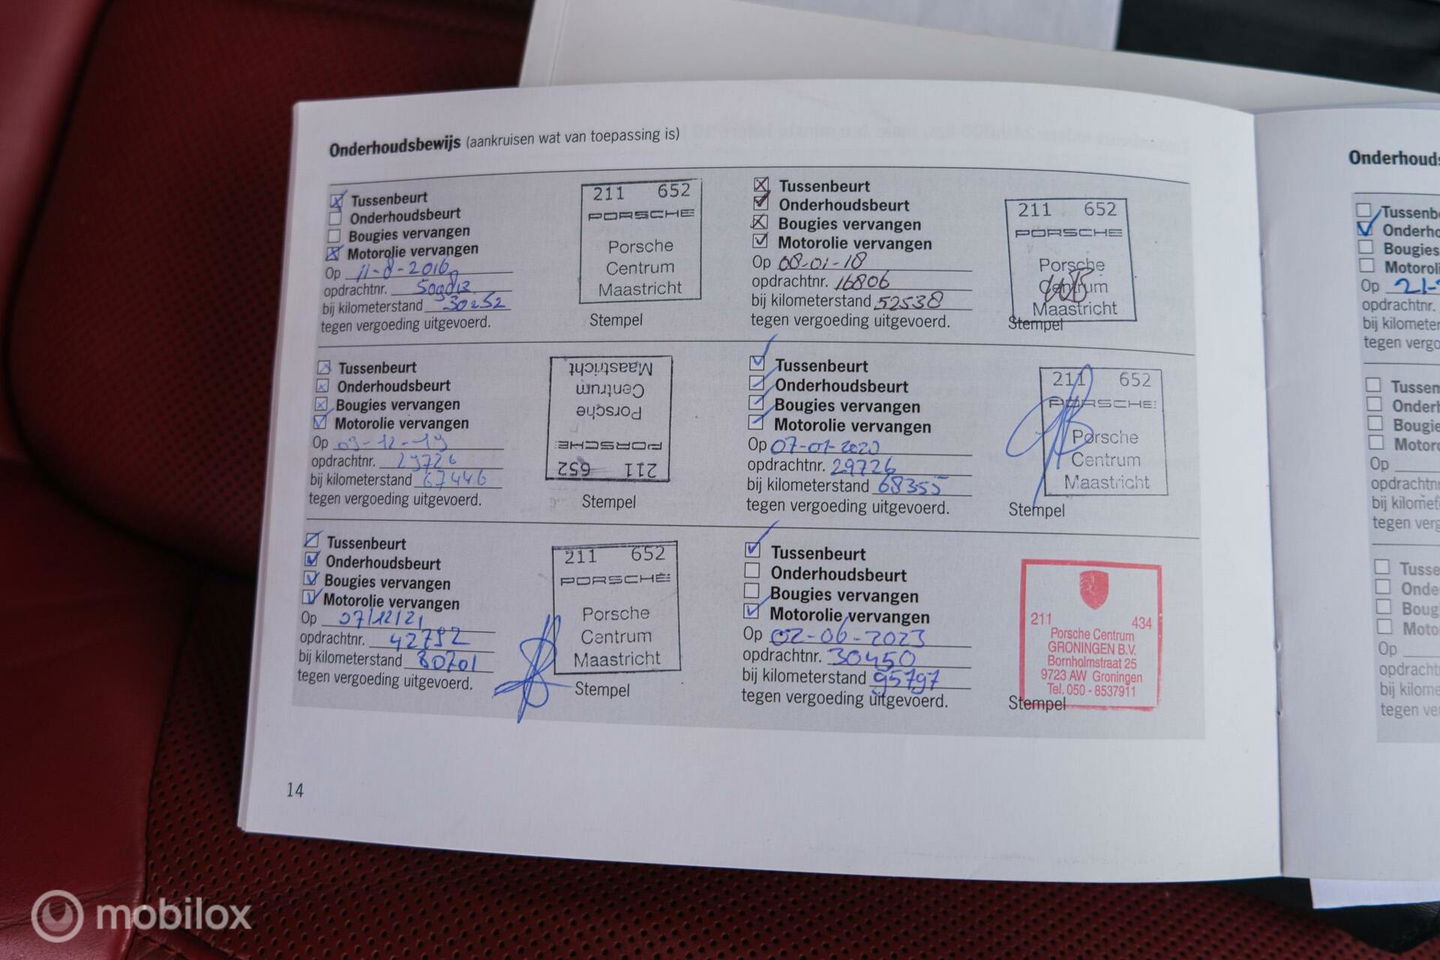 Onderhoudsbewijs (aankruisen wat van toepassing is)
Tussenbeurt
Onderhoudsbeurt
Bougies vervangen
Motorolie vervangen
Op 11-8-2016
opdrachtnr.
bij kilometerstand 30252
tegen vergoeding uitgevoerd.
211 652
PORSCHE
Porsche
Centrum
Maastricht
Stempel
Tussenbeurt
Onderhoudsbeurt
Bougies vervangen
Motorolie vervangen
Op 08-01-18
opdrachtnr. 16806
bij kilometerstand 52538
tegen vergoeding uitgevoerd.
211 652
PORSCHE
Porsche
Centrum
Maastricht
Stempel
Tussenbeurt
Onderhoudsbeurt
Bougies vervangen
Motorolie vervangen
Op 03-12-19
opdrachtnr.
bij kilometerstand 67446
tegen vergoeding uitgevoerd.
211 652
PORSCHE
Porsche
Centrum
Maastricht
Stempel
Tussenbeurt
Onderhoudsbeurt
Bougies vervangen
Motorolie vervangen
Op 07-01-2020
opdrachtnr. 29726
bij kilometerstand 68355
tegen vergoeding uitgevoerd.
211 652
PORSCHE
Porsche
Centrum
Maastricht
Stempel
Tussenbeurt
Onderhoudsbeurt
Bougies vervangen
Motorolie vervangen
Op 07/12/21
opdrachtnr. 42792
bij kilometerstand 80701
tegen vergoeding uitgevoerd.
211 652
PORSCHE
Porsche
Centrum
Maastricht
Stempel
Tussenbeurt
Onderhoudsbeurt
Bougies vervangen
Motorolie vervangen
Op 02-06-2023
opdrachtnr. 30450
bij kilometerstand 95797
tegen vergoeding uitgevoerd.
211 434
Porsche Centrum
GRONINGEN B.V.
Bornholmstraat 25
9723 AW Groningen
Tel. 050 - 8537911
Stempel
14
Onderhouds
Tussenb
Onderho
Bougies
Motoroli
Op 21-
opdrachtnr.
bij kilometer
tegen vergoe
Tussen
Onderh
Bougie
Motor
Op
opdrachtn
bij kilomet
tegen verg
Tusse
Onde
Boug
Moto
Op
opdracht
bij kilome
tegen ve
mobilox